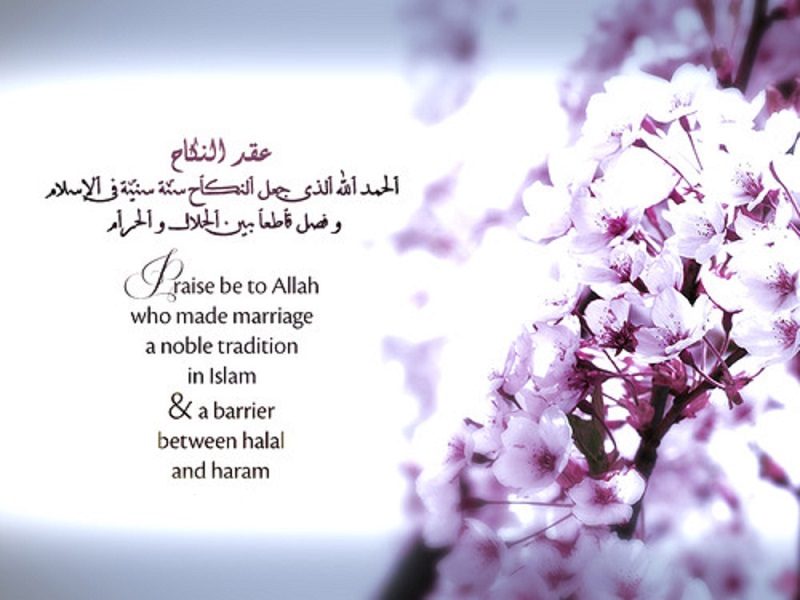 عقد النكاح
الحمد الله الذي جعل النكاح سنّة سنيّة في الإسلام
و فصل قاطعاً بين الحلال و الحرام
Praise be to Allah
who made marriage
a noble tradition
in Islam
& a barrier
between halal
and haram